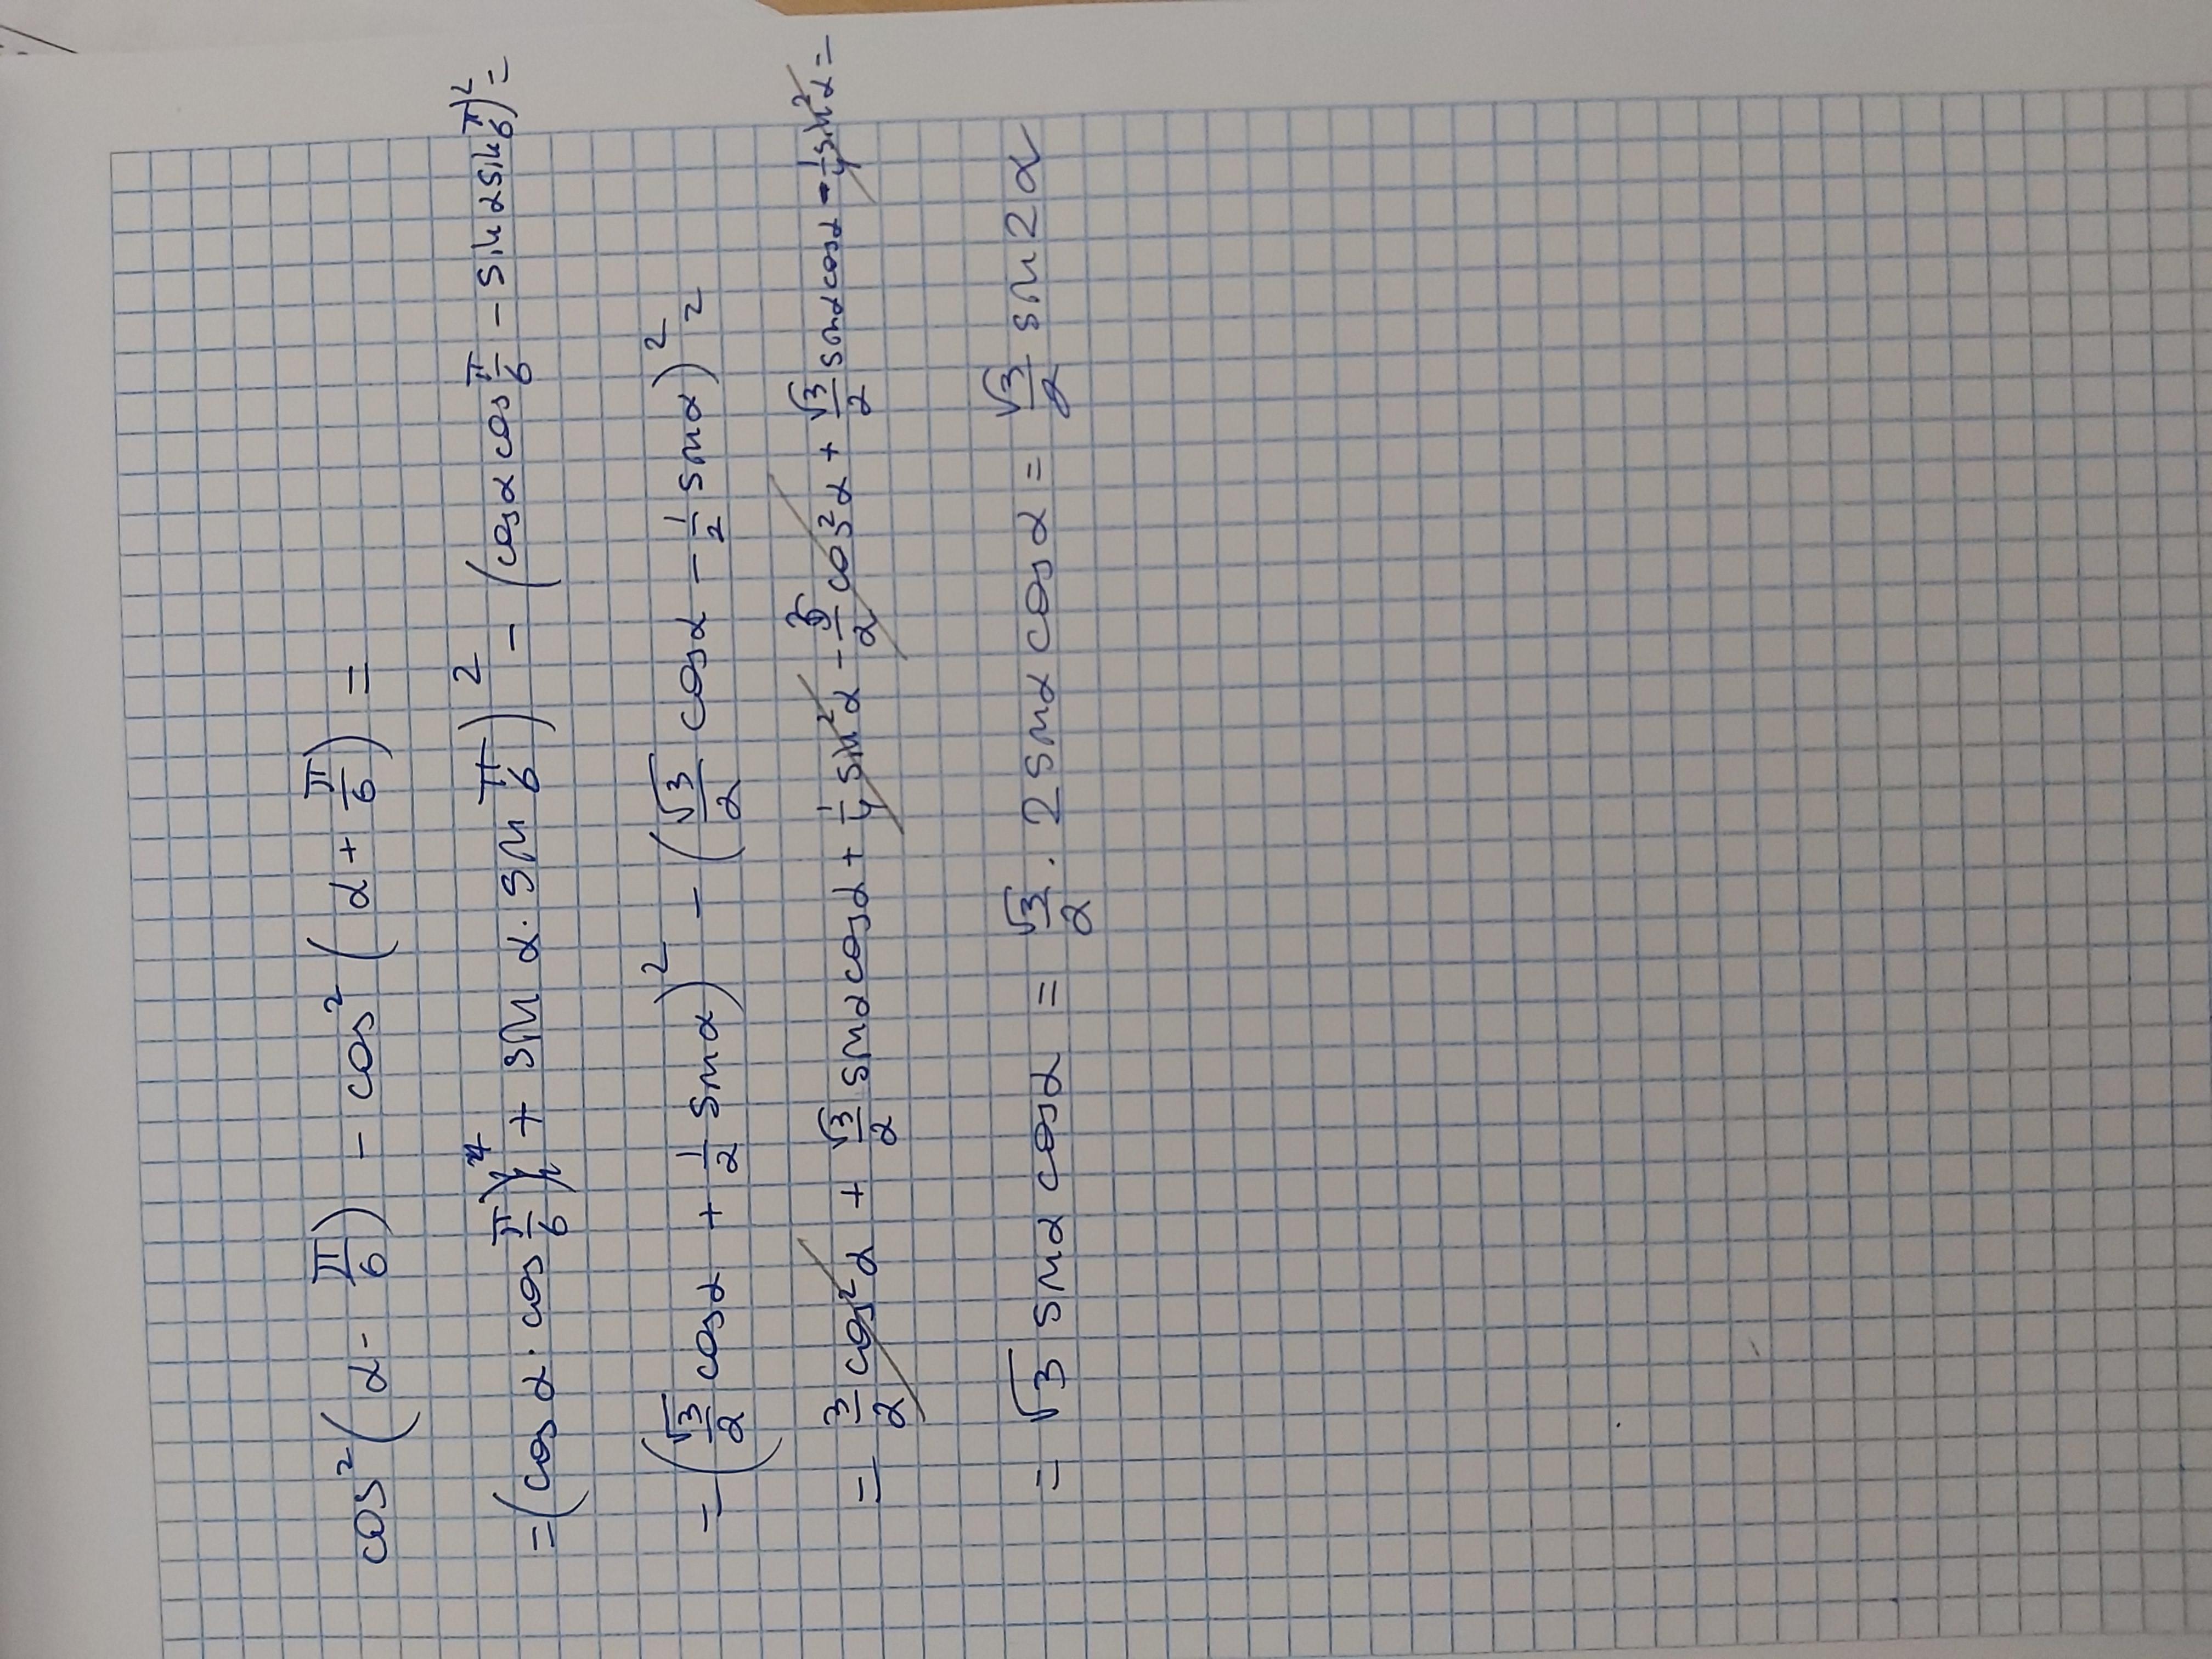 cos²(α - π/6) - cos²(α + π/6) =
= (cos α · cos π/6 + sin α · sin π/6)² - (cos α cos π/6 - sin α sin π/6)² =
= (√3/2 cos α + 1/2 sin α)² - (√3/2 cos α - 1/2 sin α)² =
= 3/2 cos² α + √3/2 sin α cos α + 1/4 sin² α - 3/2 cos² α + √3/2 sin α cos α - 1/4 sin² α =
= √3 sin α cos α = √3/2 · 2 sin α cos α = √3/2 sin 2α